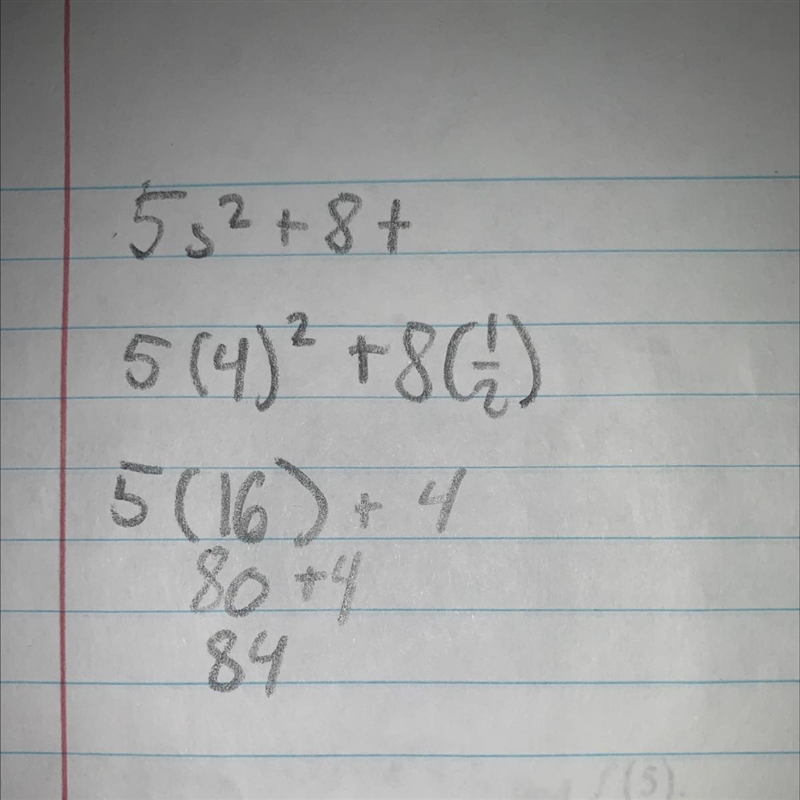 5s² + 8t
5(4)² + 8(1/2)
5(16) + 4
80 + 4
84
f(5).